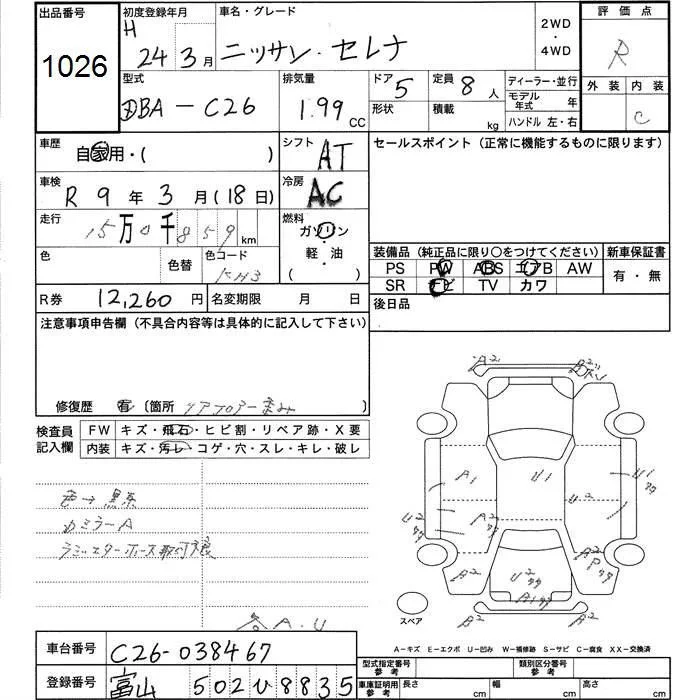 出品番号
1026
初度登録年月
H 24 3月
車名・グレード
ニッサン・セレナ
2WD・4WD
評価点
R
外装 内装
C
型式
DBA-C26
排気量
1.99 CC
ドア 5
形状
定員 8 人
積載 kg
ディーラー・並行
モデル年式 年
ハンドル 左・右
車歴
自家用・( )
シフト AT
車検
R 9年 3月(18日)
冷房 AC
走行
15万0千859km
燃料
ガソリン
軽・油
( )
色
色替
色コード
KH3
R券 12,260円
名変期限 月 日
セールスポイント(正常に機能するものに限ります)
装備品(純正品に限り○をつけてください)
PS PW ABS エアB AW
SR ナビ TV カワ
新車保証書
有・無
後日品
注意事項申告欄(不具合内容等は具体的に記入して下さい)
修復歴 有〔箇所 リアフロアー歪み〕
検査員記入欄
FW キズ・飛石・ヒビ割・リペア跡・X要
内装 キズ・汚レ・コゲ・穴・スレ・キレ・破レ
色→黒系
カミラーA
各A.U
A2
A1
U1
U1
U2
U2
A2
A2
A2
U2
スペア
A-キズ E-エクボ U-凹み W-補修跡 S-サビ C-腐食 XX-交換済
車台番号
C26-038467
登録番号
富山 502ひ8835
型式指定番号参考
類別区分番号参考
車庫証明用参考 長さ cm 幅 cm 高さ cm